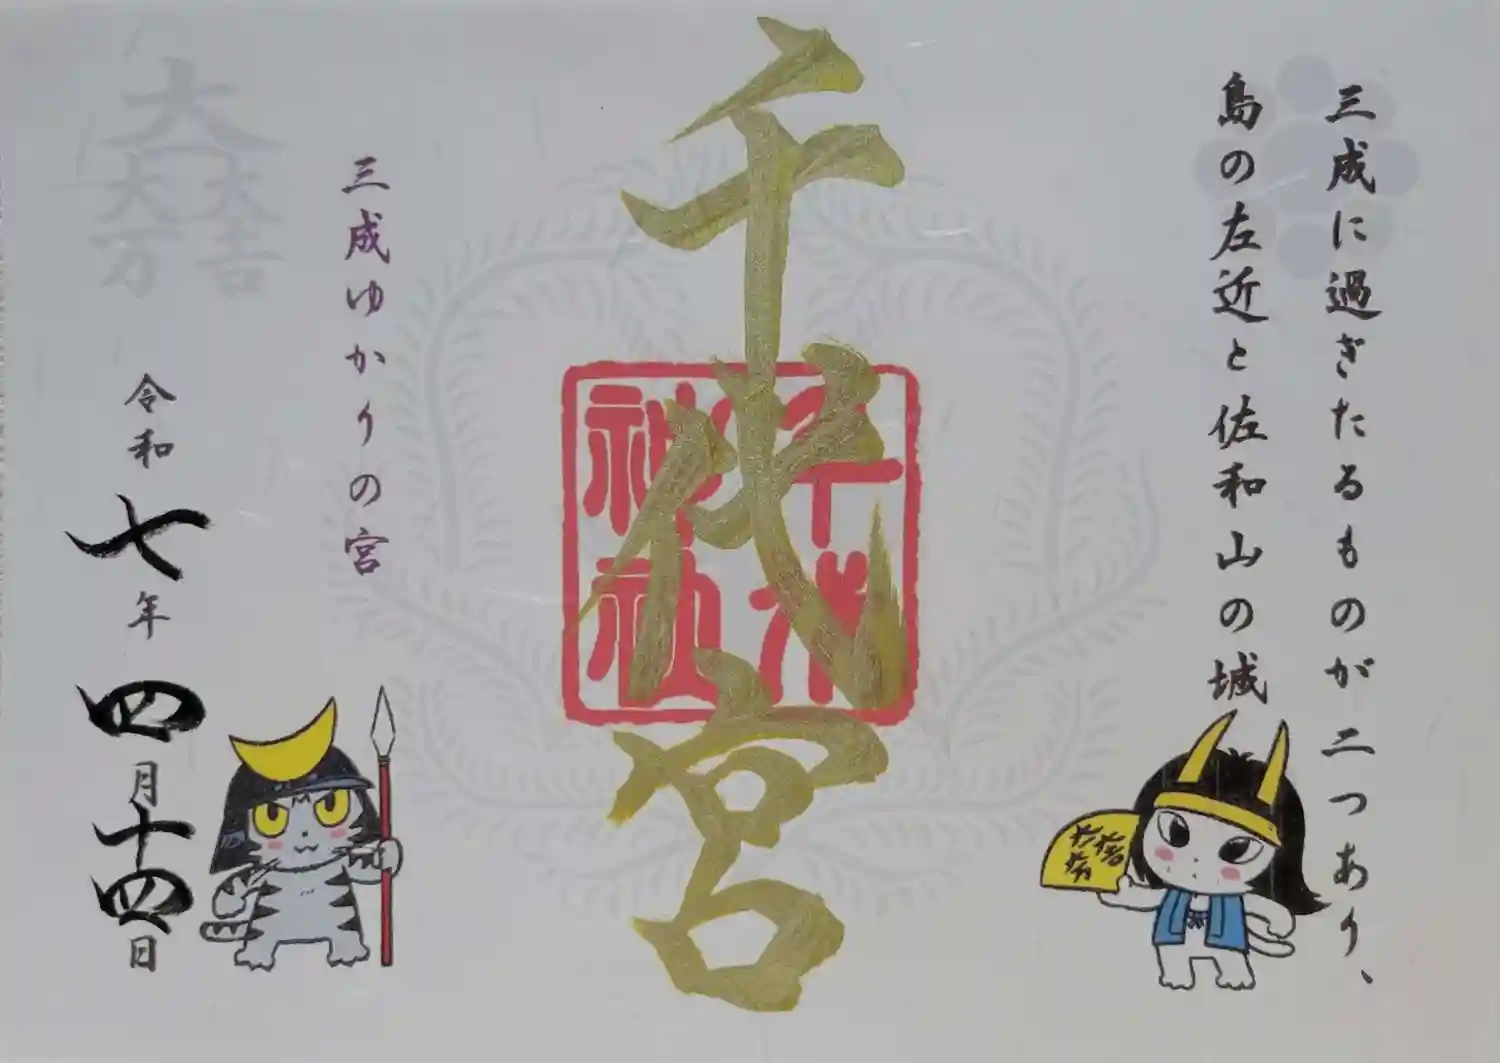 三成に過ぎたるものが二つあり、
島の左近と佐和山の城
千代宮
千代
神社
三成ゆかりの宮
大一
大万
大吉
令和七年四月十四日